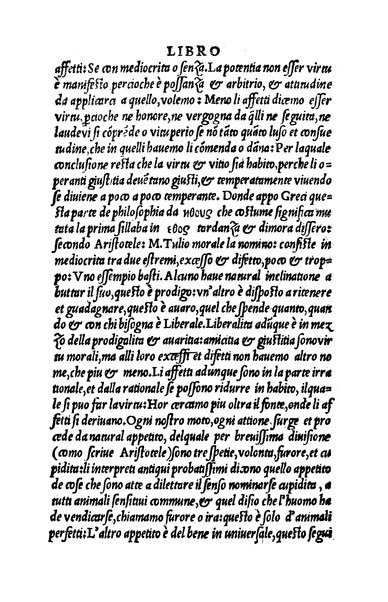 LIBRO
affetti: Se con mediocrita o senza. La potentia non esser virtu
è manifesto percioche è possanza & arbitrio, & attitudine
da applicara a quello, volemo: Meno li affetti dicemo esser
virtu, ꝑcioche ne honore, ne vergogna da q̃lli ne seguita, ne
laude vi si cõprẽde o vituperio se nõ tãto quãto l'uso et consue
tudine, che in quelli hauemo li comenda o dãna: Per laquale
conclusione resta che la virtu & vitio siã habito, perche li o⸗
peranti giustitia deuẽtano giusti, & temperatamente viuendo
se diuiene a poco a poco temperante. Donde appo Greci que⸗
sta parte de philosophia da ηθους che costume significa mu
tata la prima sillaba in εθος tardanza & dimora dissero:
secondo Aristotele: M. Tulio morale la nomino: consiste in
mediocrita tra due estremi, excesso & difetto, poco & trop⸗
po: Vno essempio basti. Alcuno haue natural inclinatione a
buttar il suo, questo è prodigo: vn'altro è disposto a ritenere
et guadagnare, questo è auaro, quel che spende quanto, quan
do & con chi bisogna è Liberale. Liberalita adũque è in mez
zo della prodigalita & auarita: amicita & giustitia sono vir
tu morali, ma alli loro excessi et difetti non hauemo altro no
me, che piu & meno. Li affetti adunque sono in la parte irra
tionale, et dalla rationale se possono ridurre in habito, ilqua⸗
le si puo far la virtu: Hor cercamo piu oltra il fonte, onde li af
fetti si deriuano. Ogni nostro moto, ogni attione surge et pro
cede da natural appetito, delquale per breuissima diuisione
(como scriue Aristotele) sono tre spetie, volonta, furore, et cu
pidita: li interpreti antiqui probatissimi dicono quello appetito
de cose che sono atte a dilettare il senso nominarse cupidita, a
tutti animali sensitiui commune, & quel disio che l'huomo ha
de vendicarse, chiamamo furore o ira: questo è solo d'animali
perfetti: L'altro appetito è del bene in vniuersale, questo segui